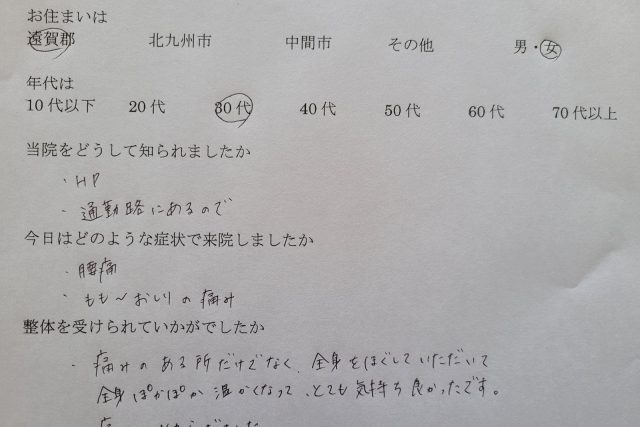 お住まいは
遠賀郡 北九州市 中間市 その他 男・女
年代は
10代以下 20代 30代 40代 50代 60代 70代以上
当院をどうして知られましたか
・HP
・通勤路にあるので
今日はどのような症状で来院しましたか
・腰痛
・もも～おしりの痛み
整体を受けられていかがでしたか
・痛みのある所だけでなく、全身をほぐしていただいて
全身ぽかぽか温かくなって、とても気持ち良かったです。